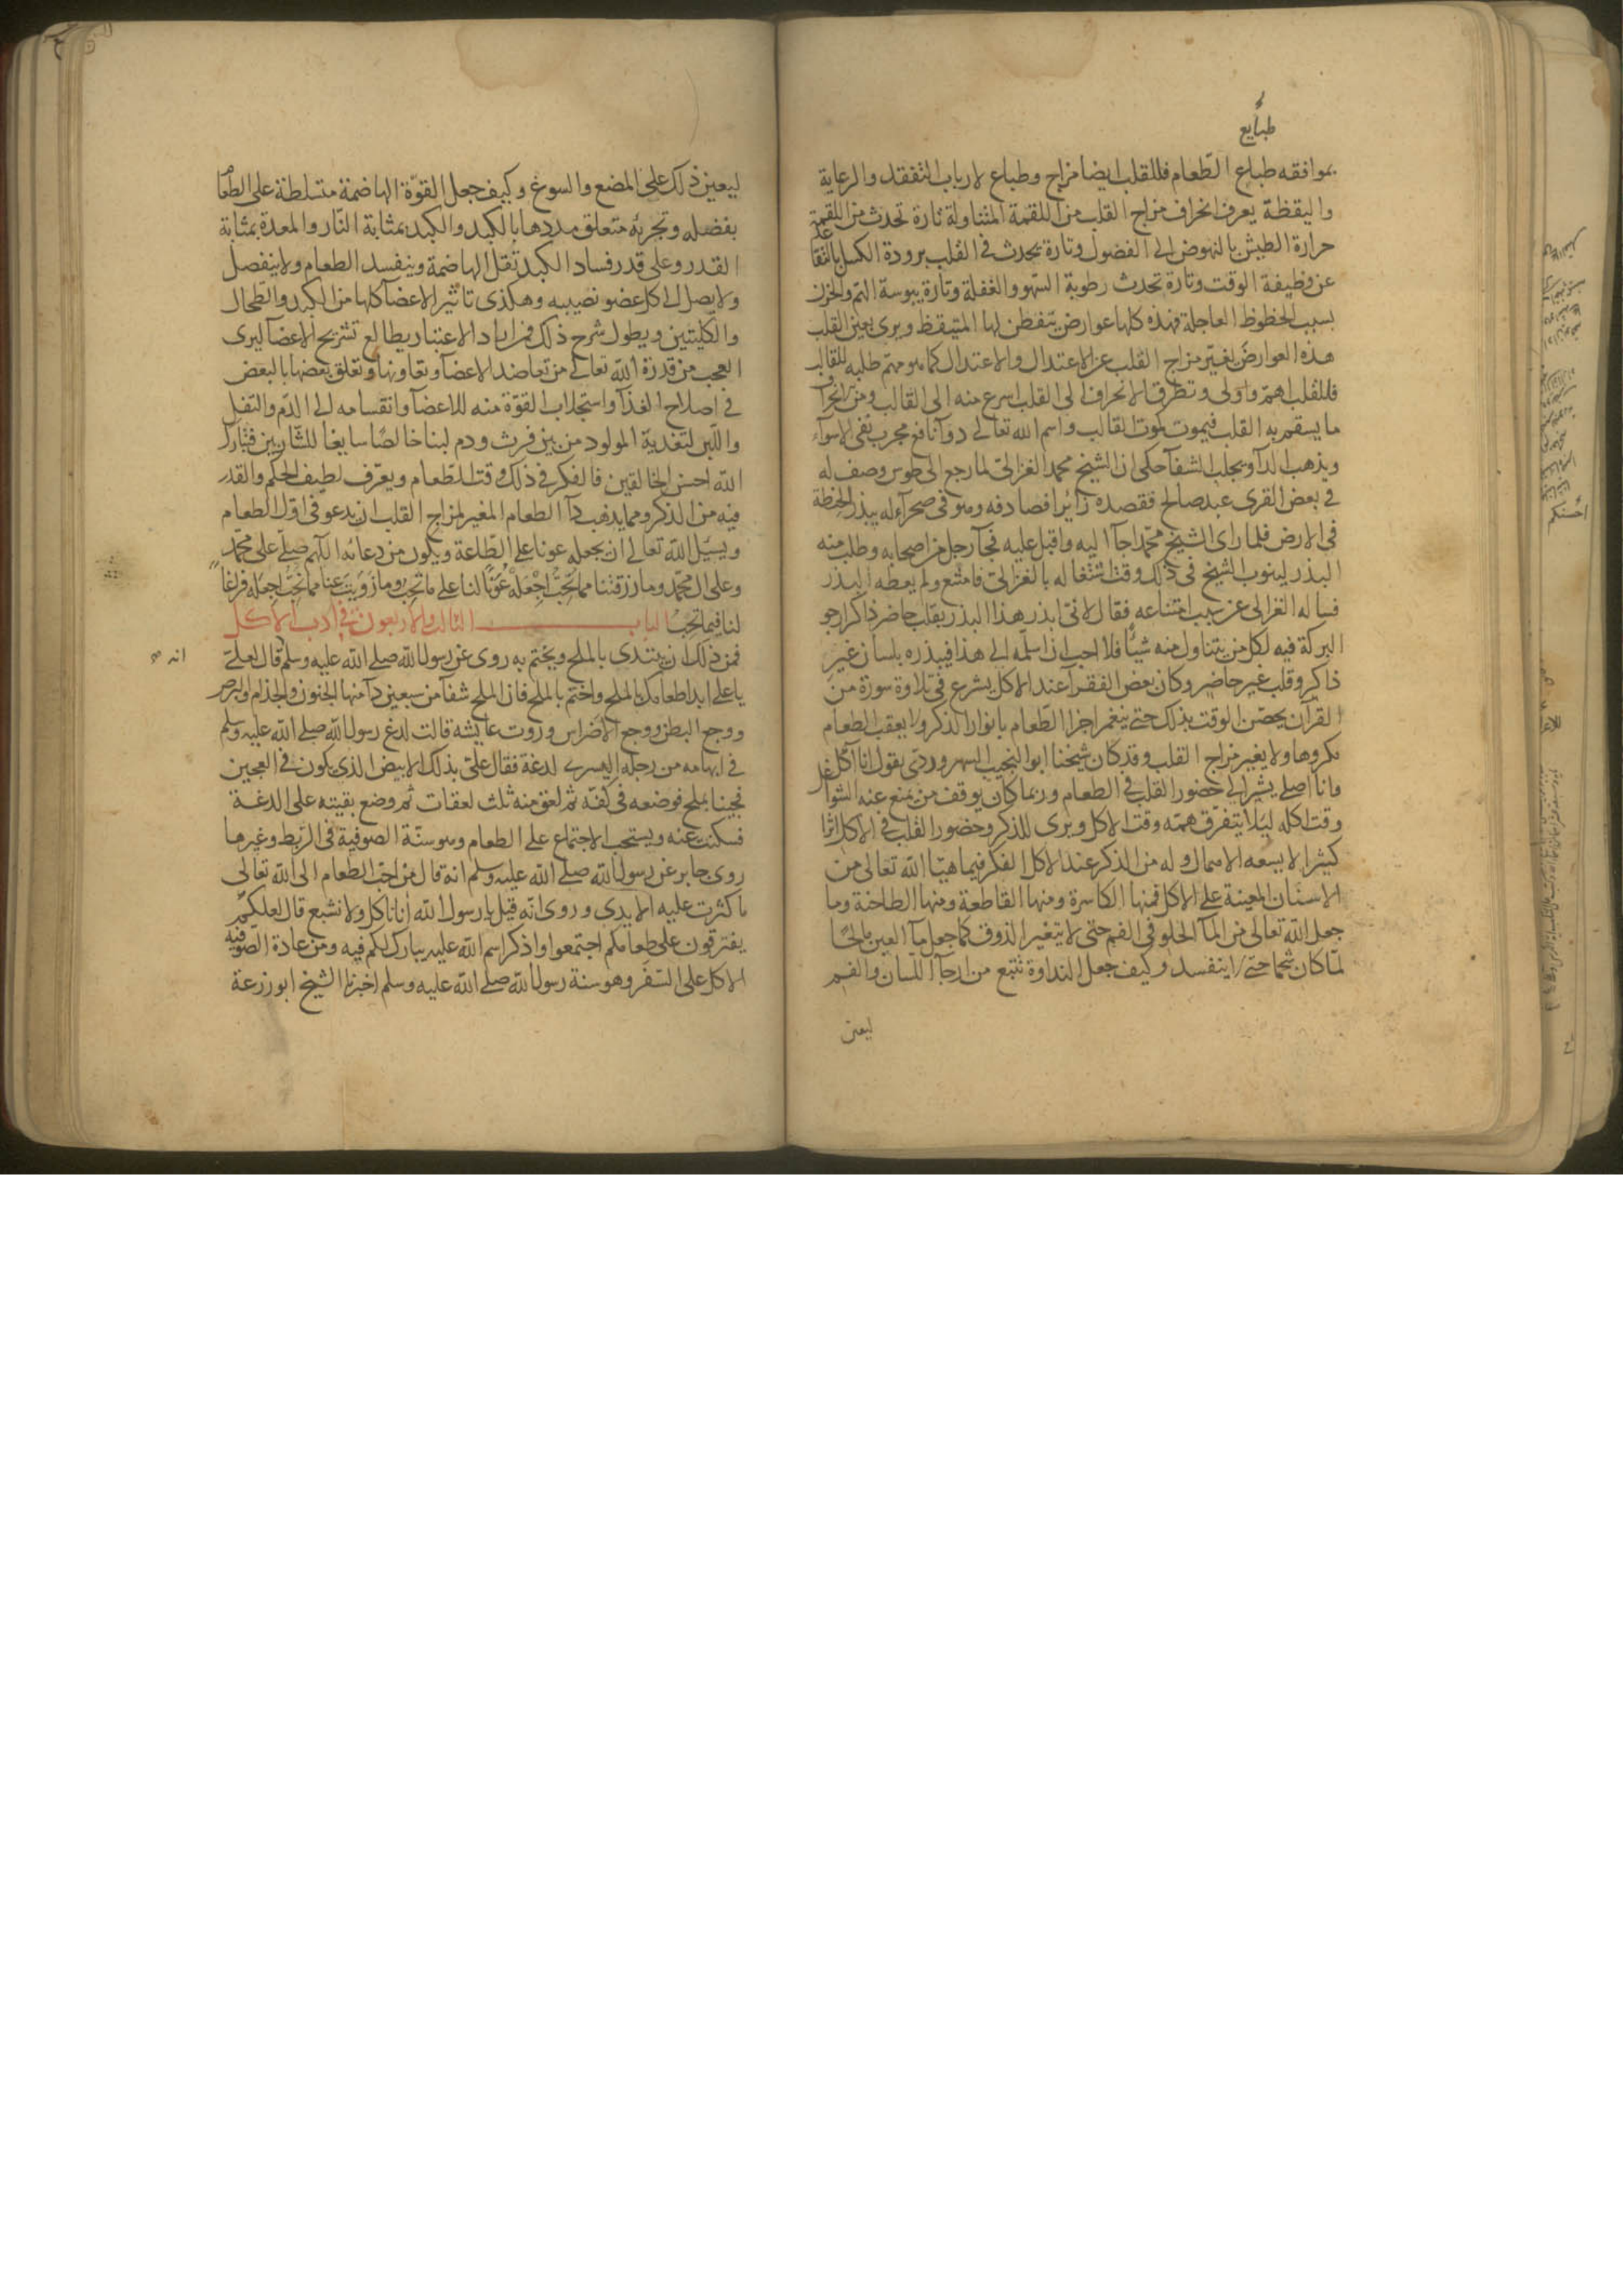 طبايع
بموافقه طباع الطعام فللقلب ايضا مزاج وطباع لارباب التفقد والرعاية
واليقظة يعرف انحراف مزاج القلب من اللقمة المتناولة تارة تحدث من اللقمة
حرارة الطيش بالنهوض الى الفضول وتارة تحدث فى القلب برودة الكسل بالتقاعد
عن وظيفة الوقت وتارة تحدث رطوبة السهو والغفلة وتارة يبوسة الهم والحزن
بسبب الحظوظ العاجلة فهذه كلها عوارض يتفطن لها المتيقظ ويرى بعين القلب
هذه العوارض تغير مزاج القلب عن الاعتدال والاعتدال كما هو مهم طلبه للقالب
فللقلب اهم واولى وتطرق الانحراف الى القلب اسرع منه الى القالب ومن انحراف
ما يسقم به القلب فيموت كموت القالب واسم الله تعالى دوآ نافع مجرب يقى الاسوآء
ويذهب الدآ ويجلب الشفآ حكى ان الشيخ محمد الغزالى لما رجع الى طوس وصف له
فى بعض القرى عبد صالح فقصده زآئرا فصادفه وهو فى صحرآء له يبذر الحنطة
فى الارض فلما راى الشيخ محمد جآ اليه واقبل عليه فجآ رجل من اصحابه وطلب منه
البذر لينوب الشيخ فى ذلك وقت اشتغاله بالغزالى فامتنع ولم يعطه البذر
فساله الغزالى عن سبب امتناعه فقال لانى ابذر هذا البذر بقلب حاضر ذاكر ارجو
البركة فيه لكل من يتناول منه شيئا فلا احب ان اسلمه الى هذا فيبذره بلسان غير
ذاكر وقلب غير حاضر وكان بعض الفقرآ عند الاكل يشرع فى تلاوة سورة من
القرآن يحضر الوقت بذلك حتى ينغمر اجزا الطعام بانوار الذكر ولا يعقب الطعام
مكروها ولا يغير مزاج القلب وقد كان شيخنا ابو النجيب السهروردى يقول انا آكل
وانا اصلى يشير الى حضور القلب فى الطعام وربما كان يوقف من يمنع عنه الشواغل
وقت اكله ليلا يتفرق همه وقت الاكل ويرى للذكر وحضور القلب فى الاكل اثرا
كثيرا لا يسعه الاهمال وله من الذكر عند الاكل الفكر فيما هيا الله تعالى من
الاسنان المعينة على الاكل فمنها الكاسرة ومنها القاطعة ومنها الطاحنة وما
جعل الله تعالى من المآ الحلو فى الفم حتى لا يتغير الذوق كما جعل مآ العين مالحا
لما كان شحما حتى لا ينفسد وكيف جعل النداوة تنبع من ارجآ اللسان والفم
ليعين
ليعين ذلك على المضغ والسوغ وكيف جعل القوة الهاضمة متسلطة على الطعام
بفضله وتجزيه متعلق مددها بالكبد والكبد بمثابة النار والمعدة بمثابة
القدر وعلى قدر فساد الكبد تقل الهاضمة وينفسد الطعام ولا ينفصل
ولا يصل الى كل عضو نصيبه وهكذى تاثير الاعضآ كلها من الكبد والطحال
والكليتين ويطول شرح ذلك فمن اراد الاعتبار يطالع تشريح الاعضآ ليرى
العجب من قدرة الله تعالى من تعاضد الاعضآ وتعاونها وتعلق بعضها بالبعض
فى اصلاح الغذآ واستجلاب القوة منه للاعضآ وانقسامه الى الدم والثفل
واللبن لتغذية المولود من بين فرث ودم لبنا خالصا سايغا للشاربين فتبارك
الله احسن الخالقين فالفكر فى ذلك وقت الطعام ويعرف لطيف الحكم والقدر
فيه من الذكر ومما يذهب دآ الطعام المغير لمزاج القلب ان يدعو فى اول الطعام
ويسئل الله تعالى ان يجعله عونا على الطاعة ويكون من دعائه اللهم صلى على محمد
وعلى ال محمد وما رزقتنا مما تحب اجعله عونا لنا على ما تحب وما زويت عنا مما نحب اجعله فراغا
لنا فيما تحب الباب الثالث والاربعون فى ادب الاكل
فمن ذلك ان يبتدى بالملح ويختم به روى عن رسول الله صلى الله عليه وسلم قال لعلى
انه
يا على ابدا طعامك بالملح واختم بالملح فان الملح شفآ من سبعين دآ منها الجنون والجذام والبرص
ووجع البطن ووجع الاضراس وروت عايشه قالت لدغ رسول الله صلى الله عليه وسلم
فى ابهامه من رجله اليسرى لدغة فقال على بذلك الابيض الذى يكون فى العجين
فجينا بملح فوضعه فى كفه ثم لعق منه ثلث لعقات ثم وضع بقيته على الدغة
فسكنت عنه ويستحب الاجتماع على الطعام وهو سنة الصوفية فى الربط وغيرها
روى جابر عن رسول الله صلى الله عليه وسلم انه قال من احب الطعام الى الله تعالى
ما كثرت عليه الايدى وروى انه قيل يا رسول الله انا ناكل ولا نشبع قال لعلكم
يفترقون على طعامكم اجتمعوا واذكر اسم الله عليه يبارك لكم فيه ومن عادة الصوفيه
الاكل على السفر وهو سنة رسول الله صلى الله عليه وسلم اخبرنا الشيخ ابو زرعة